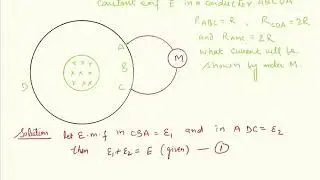 constant emf E in a conductor ABCDA
R_ABC = R , R_CDA = 2R
and R_AMC = 2R
what current will be
shown by meter M.
A
B
C
D
M
x x x
x x x
x x x
Solution Let E.m.f in CBA = E₁ and in ADC = E₂
then E₁ + E₂ = E (given) — ①